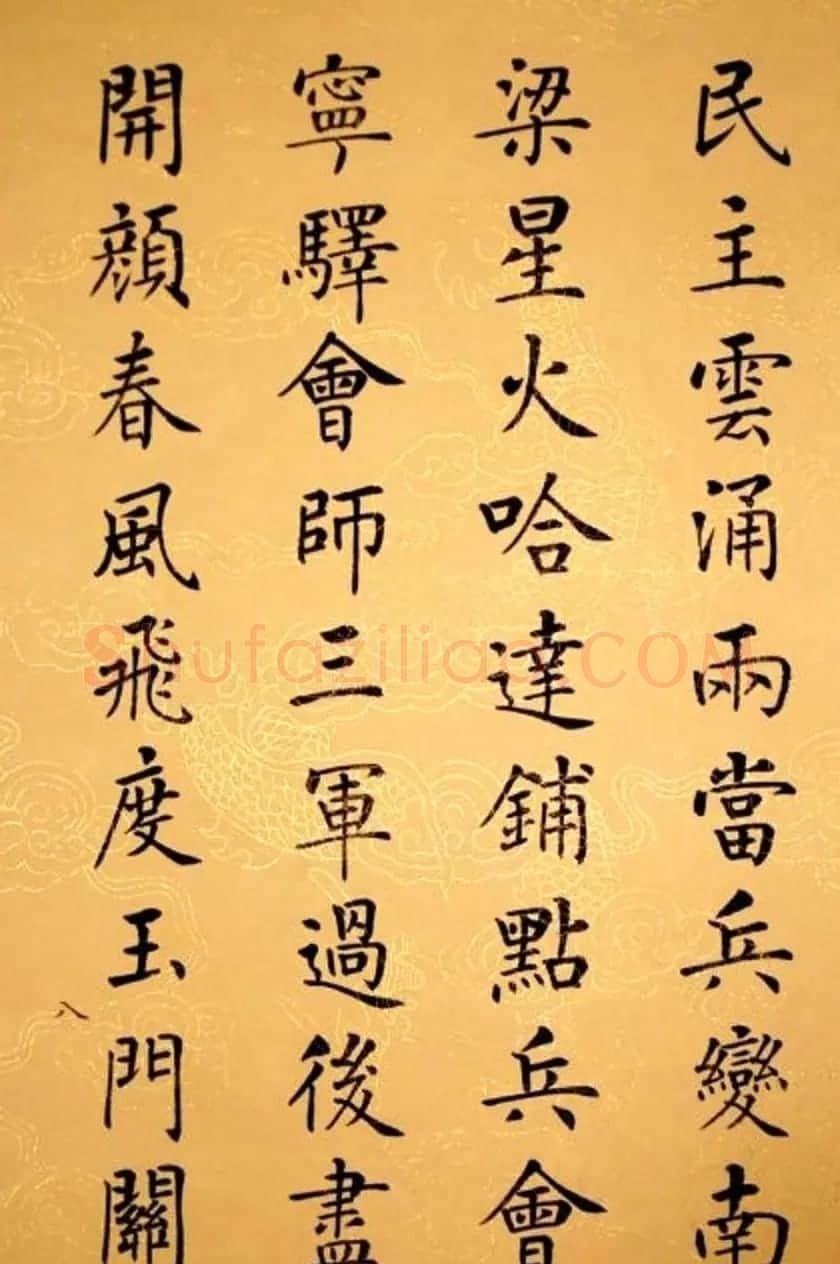 民主雲涌雨當兵變南
梁星火哈達鋪點兵會
寧驛會師三軍過後盡
開顔春風飛度玉門關
八
Shufaziliao.COM